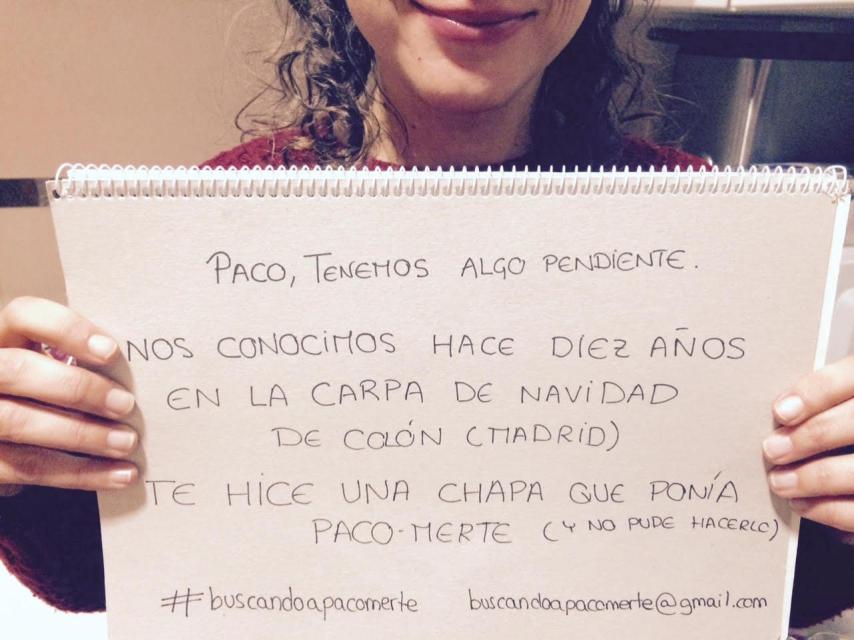 PACO, TENEMOS ALGO PENDIENTE.
NOS CONOCIMOS HACE DIEZ AÑOS
EN LA CARPA DE NAVIDAD
DE COLÓN (MADRID)
TE HICE UNA CHAPA QUE PONÍA
PACO-MERTE (Y NO PUDE HACERLO)
#buscandoapacomerte buscandoapacomerte@gmail.com